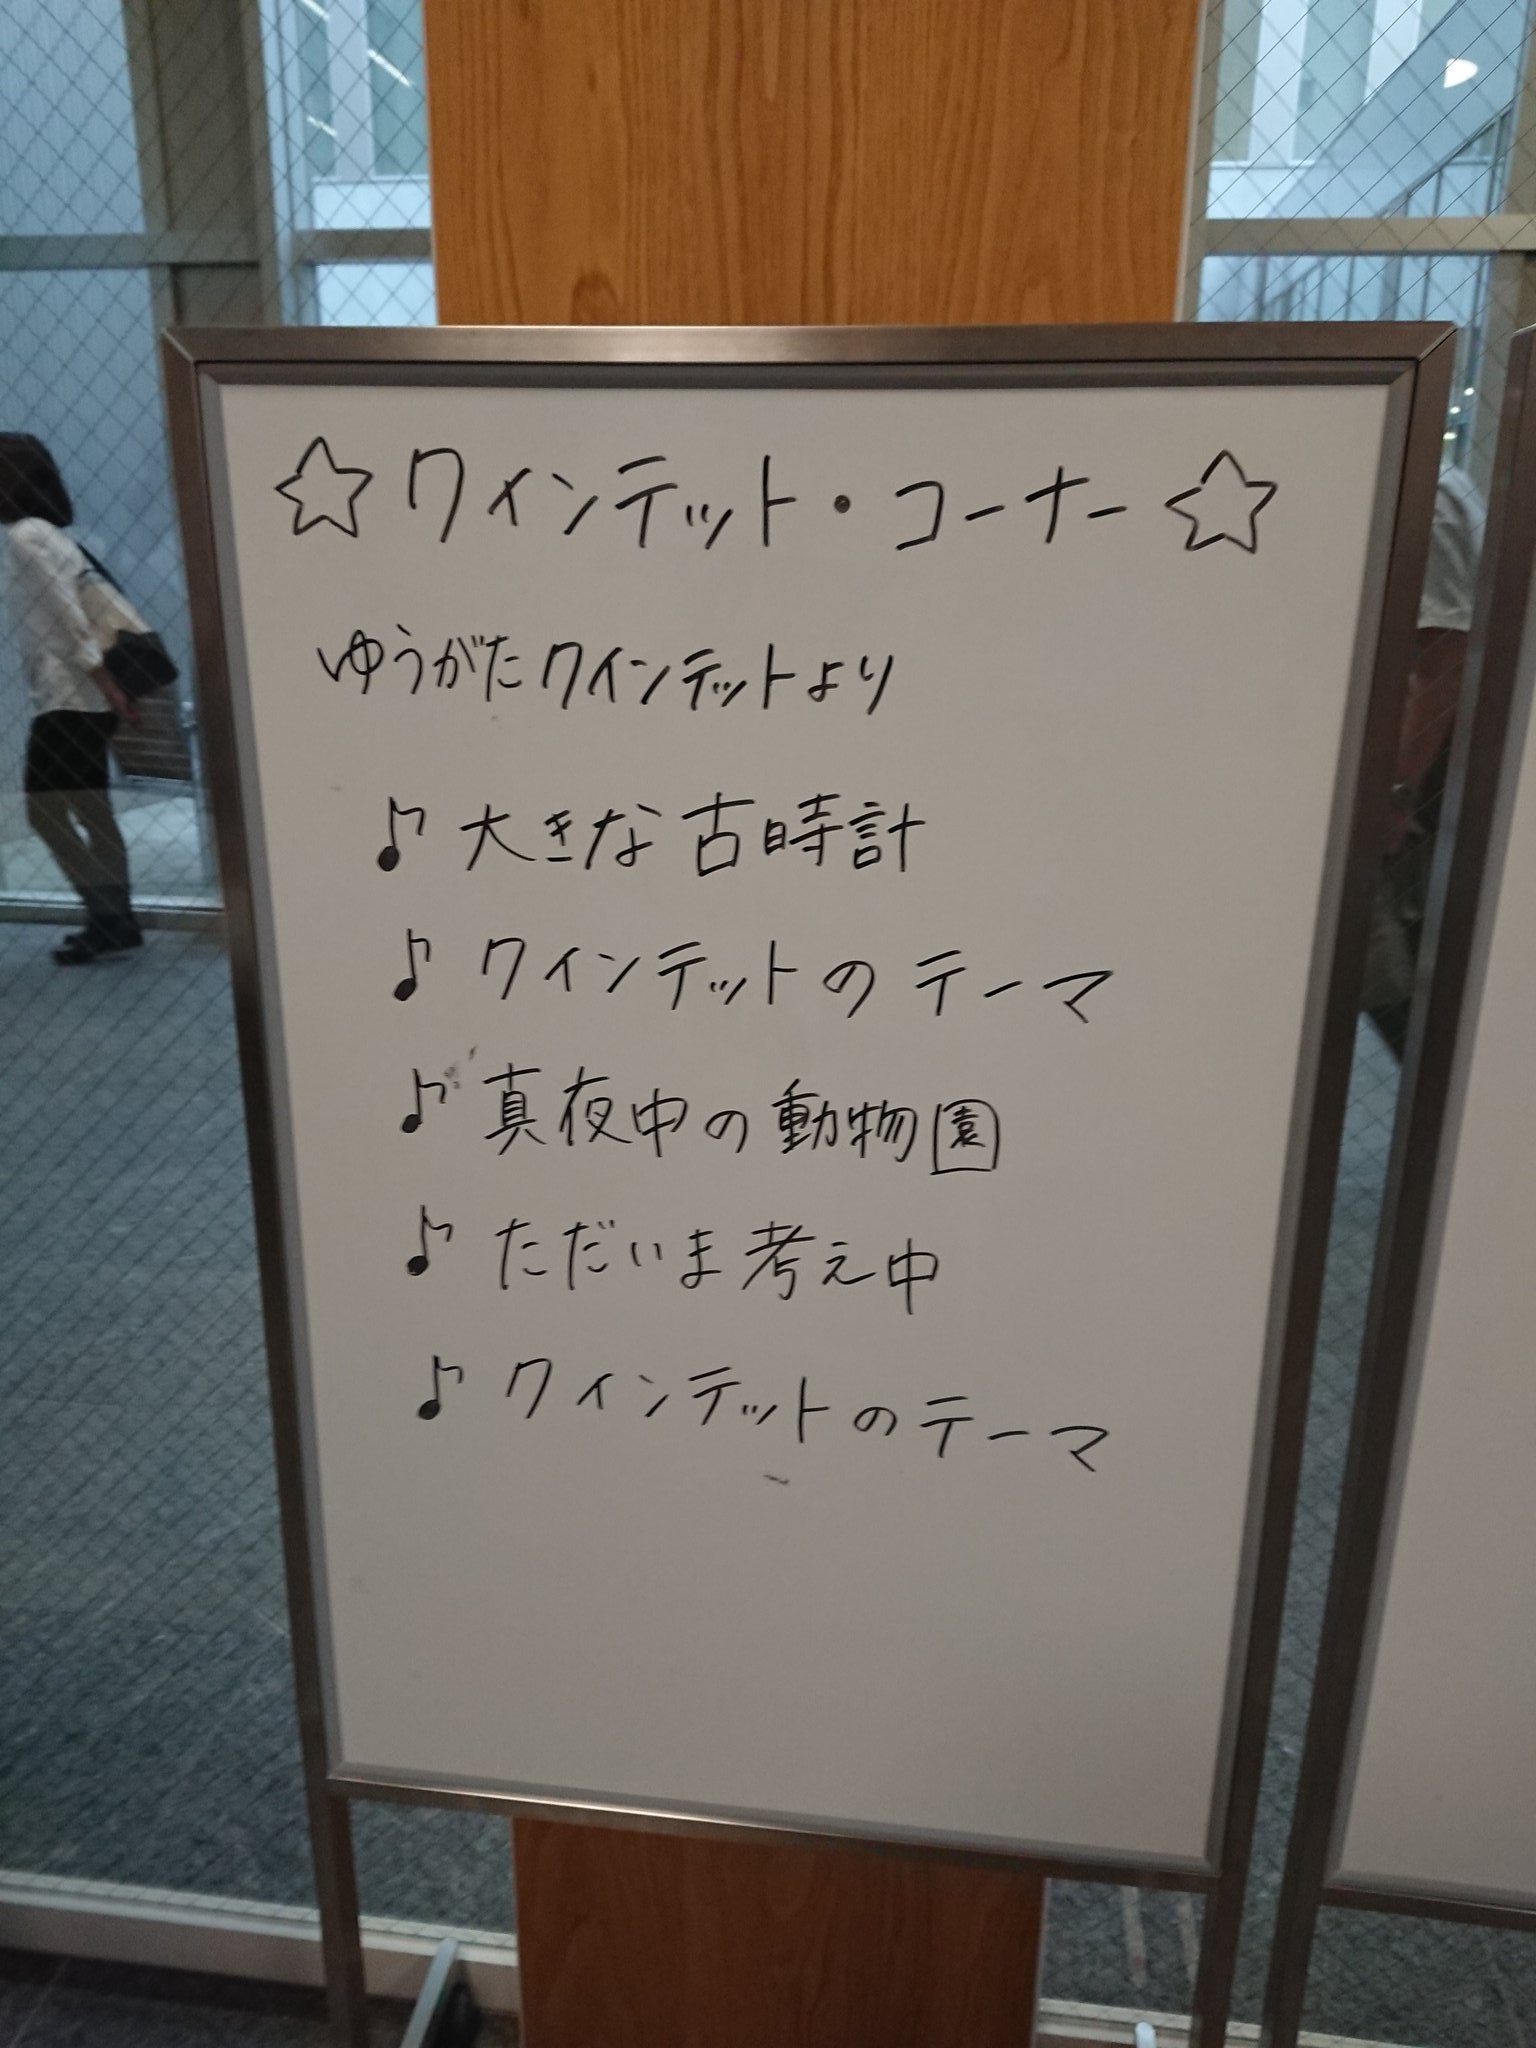 ☆クインテット・コーナー☆
ゆうがたクインテットより
♪ 大きな古時計
♪ クインテットのテーマ
♪ 真夜中の動物園
♪ ただいま考え中
♪ クインテットのテーマ